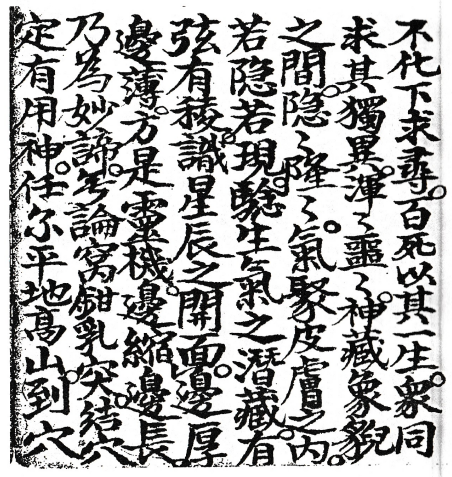 不化下求尋。百死以其一生。衆同
求其獨異。渾〻噩〻。神藏象貌
之間。隐〻隆〻。氣聚皮膚之内。
若隐若現。騐生氣之潛藏。有
弦有稜。識星辰之開面。邊厚
邊薄。方是靈機。邊縮邊長。
乃為妙諦。兮論窩鉗乳突。結穴
定有用神。任尔平地高山。到穴